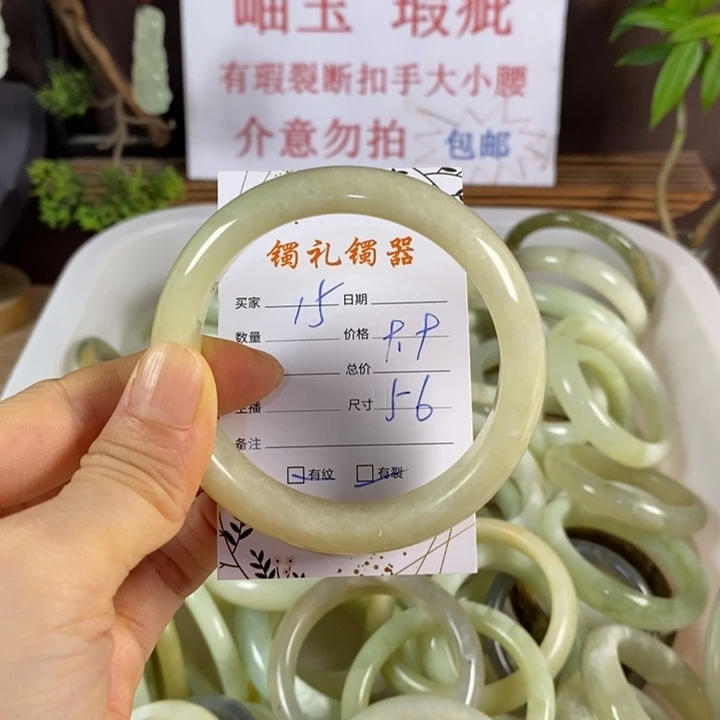 岫玉 瑕疵
有瑕裂断扣手大小腰
介意勿拍 包邮
镯礼镯器
买家 15 日期
数量 价格 9.9
总价
主播 尺寸 56
备注
有纹 有裂